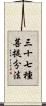 三十七種
菩提分法